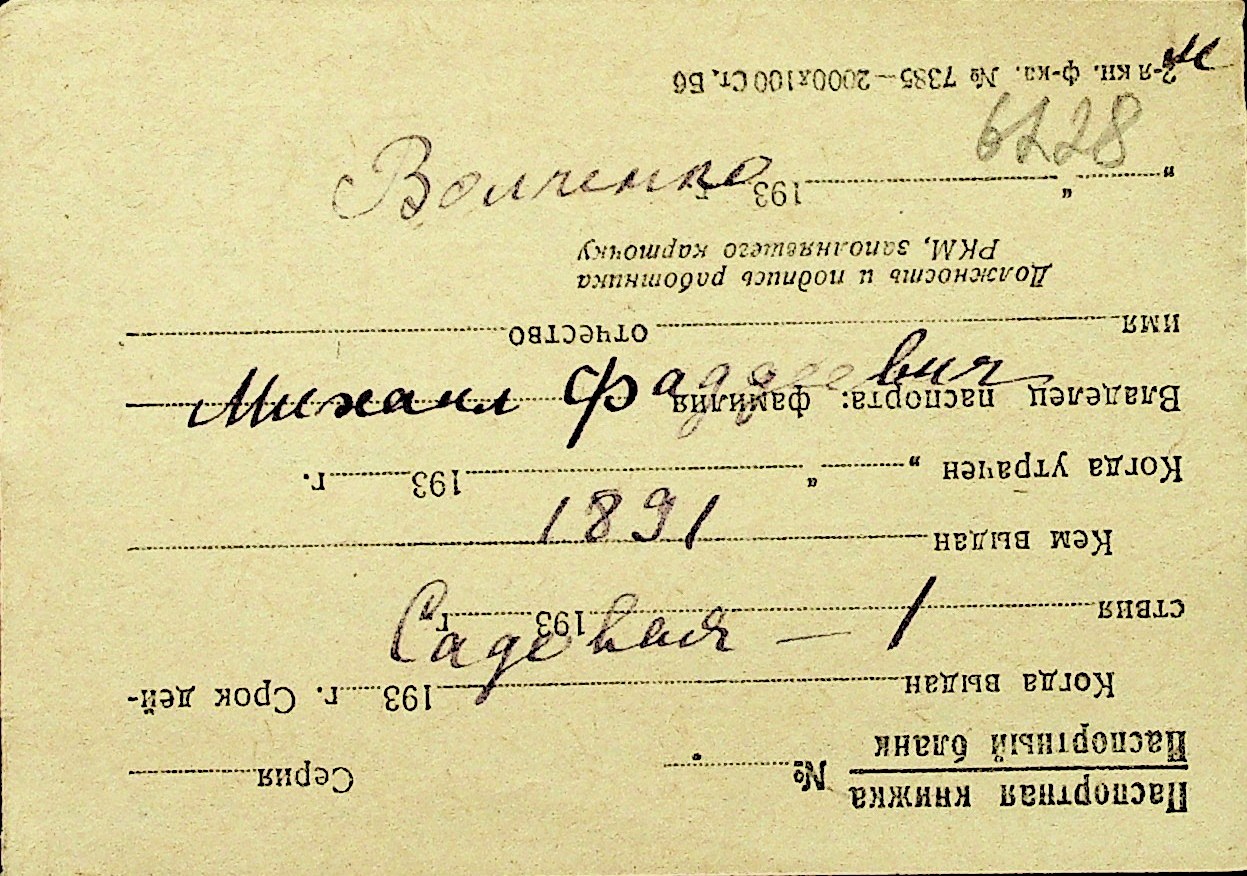 6228
Волченко
Михаил Фаддеевич
1891
Садовая — 1
Паспортная книжка № Серия
Паспортный бланк
Когда выдан 193 г. Срок дей-
ствия 193 г.
Кем выдан
Когда утрачен „ “ 193 г.
Владелец паспорта: фамилия
имя отчество
Должность и подпись работника
РКМ, заполнявшего карточку
„ “ 193 г.
2-я кн. ф-ка. № 7385—2000х100 Ст. Вб